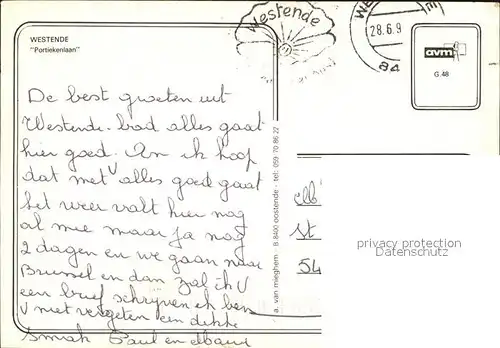 WESTENDE
"Portiekenlaan"
Westende
28.6.9
avm
G.48
De best groeten uit
Westende-bad alles gaat
hier goed. An ik hoop
dat met U alles goed gaat
het weer valt hier nog
al mee maar ja nog
2 dagen en we gaan naar
Brussel en dan zal ik U
een brief schrijven ik ben
U niet vergeten een dikke
smak Paul en
a. van mieghem B 8400 oostende - tel: 059 70 86 22
St
54
privacy protection
Datenschutz